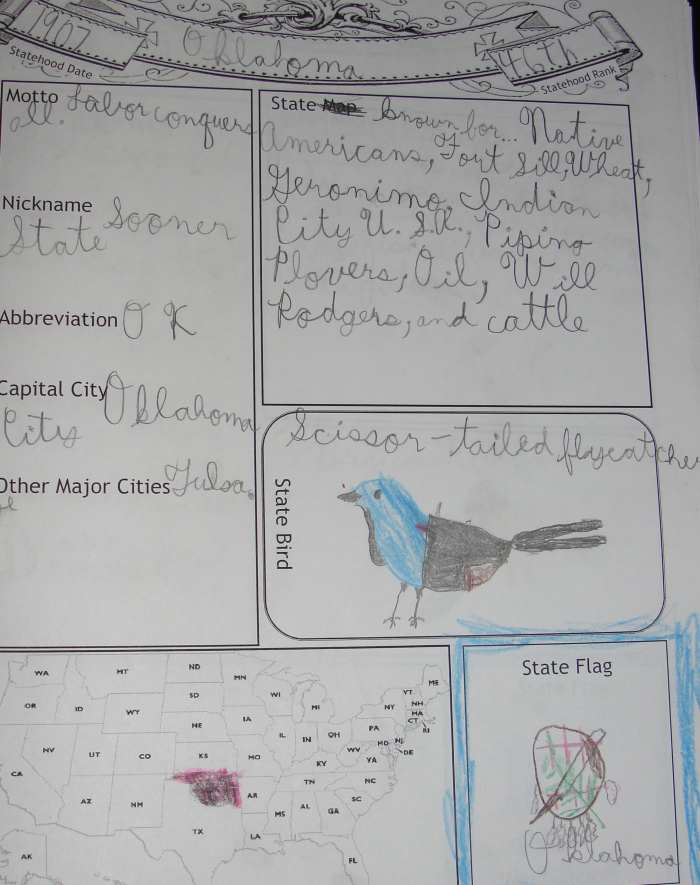 1907
Statehood Date
Oklahoma
46th
Statehood Rank
Motto Labor conquers
all.
Nickname Sooner
State
Abbreviation OK
Capital City Oklahoma
City
Other Major Cities Tulsa,
State Map known for... Native
Americans, Fort Sill, Wheat,
of
Geronimo, Indian
City U.S.A., Piping
Plovers, Oil, Will
Rodgers, and cattle
Scissor-tailed flycatcher
State Bird
WA
MT
ND
MN
ME
OR
ID
SD
WI
MI
VT
NH
NY
MA
CT
RI
WY
IA
NE
PA
NJ
NV
UT
CO
KS
MO
IL
IN
OH
WV
MD
DE
VA
KY
CA
AZ
NM
AR
TN
NC
SC
MS
AL
GA
TX
LA
FL
AK
State Flag
Oklahoma